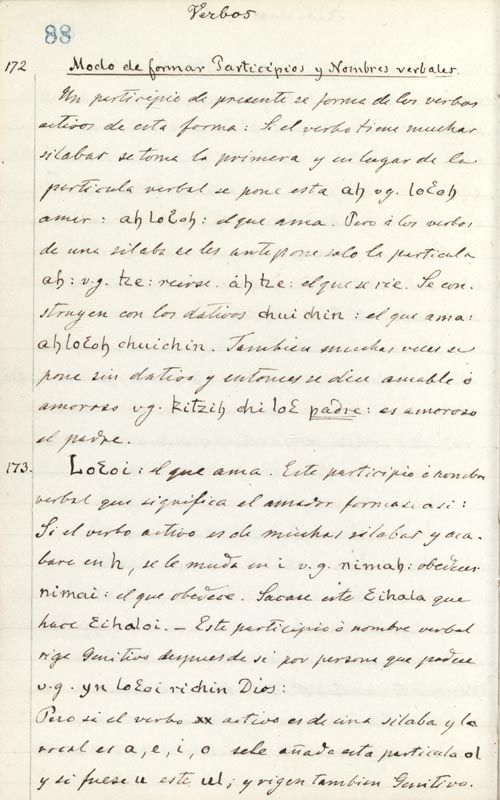 Verbos
88
172 Modo de formar Participios y Nombres verbales.
Un participio de presente se forma de los verbos
activos de esta forma: Si el verbo tiene muchas
silabas se toma la primera y en lugar de la
particula verbal se pone esta ah v.g. loɛoh
amar: ah loɛoh: el que ama. Pero á los verbos
de una silaba se les antepone solo la particula
ah: v.g. tze: reirse. ah tze: el que se rie. Se con-
struyen con los dativos chuichin: el que ama:
ah loɛoh chuichin. Tambien muchas veces se
pone sin dativo y entonces se dice amable ó
amoroso v.g. kitzih chi loɛ padre: es amoroso
el padre.
173. Loɛoi: el que ama. Este participio ó nombre
verbal que significa el amador formase asi:
Si el verbo activo es de muchas silabas y aca-
bare en h, se le muda en i v.g. nimah: obedecer
nimai: el que obedece. Sacase este ɛihala que
hace ɛihaloi. — Este participio ó nombre verbal
rige Genitivo despues de si por persona que padece
v.g. yn loɛoi richin Dios:
Pero si el verbo xx activo es de una silaba y la
vocal es a, e, i, o sele añada esta particula ol
y si fuese u este, ul; y rigen tambien Genitivo.